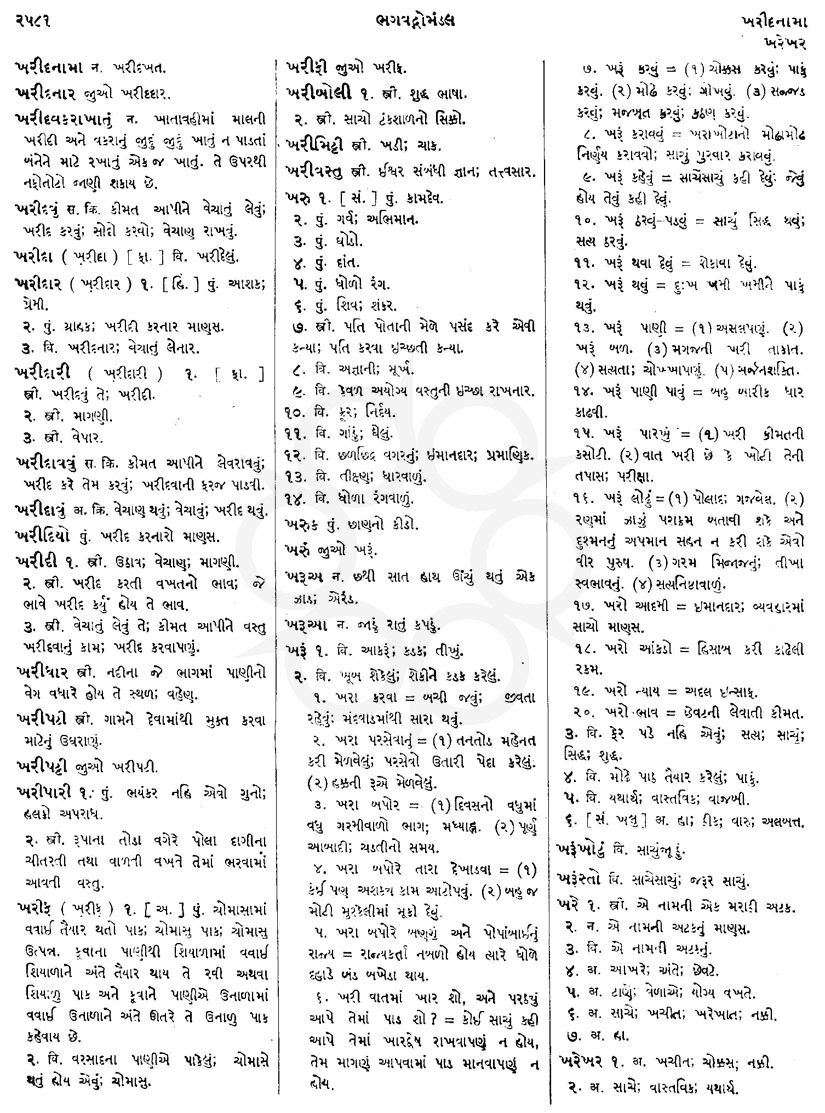 ૨૫૮૧
ભગવદ્ગોમંડલ
ખરીદનામા
ખરેખર
ખરીદનામા ન. ખરીદખત.
ખરીદનાર જુઓ ખરીદદાર.
ખરીદવકરાખાતું ન. ખાતાવહીમાં માલની
ખરીદી અને વકરાનું જુદું જુદું ખાતું ન પાડતાં
બંનેને માટે રખાતું એક જ ખાતું. તે ઉપરથી
નફોતોટો જાણી શકાય છે.
ખરીદવું સ. ક્રિ. કીમત આપીને વેચાતું લેવું;
ખરીદ કરવું; સોદો કરવો; વેચાણ રાખવું.
ખરીદા ( ખ઼રીદા ) [ ફા. ] વિ. ખરીદેલું.
ખરીદાર ( ખ઼રીદાર ) ૧. [ હિં. ] પું. આશક;
પ્રેમી.
૨. પું. ગ્રાહક; ખરીદી કરનાર માણસ.
૩. વિ. ખરીદનાર; વેચાતું લેનાર.
ખરીદારી ( ખ઼રીદારી ) ૧. [ ફા. ]
સ્ત્રી. ખરીદવું તે; ખરીદી.
૨. સ્ત્રી. માગણી.
૩. સ્ત્રી. વેપાર.
ખરીદાવવું સ. ક્રિ. કીમત આપીને લેવરાવવું;
ખરીદ કરે તેમ કરવું; ખરીદવાની ફરજ પાડવી.
ખરીદાવું અ. ક્રિ. વેચાણ થવું; વેચાવું; ખરીદ થવું.
ખરીદિયો પું. ખરીદ કરનારો માણસ.
ખરીદી ૧. સ્ત્રી. ઉઠાવ; વેચાણ; માગણી.
૨. સ્ત્રી. ખરીદ કરતી વખતનો ભાવ; જે
ભાવે ખરીદ કર્યું હોય તે ભાવ.
૩. સ્ત્રી. વેચાતું લેવું તે; કીમત આપીને વસ્તુ
ખરીદવાનું કામ; ખરીદ કરવાપણું.
ખરીધાર સ્ત્રી. નદીના જે ભાગમાં પાણીનો
વેગ વધારે હોય તે સ્થળ; વહેણ.
ખરીપટી સ્ત્રી. ગામને દેવામાંથી મુક્ત કરવા
માટેનું ઉઘરાણું.
ખરીપટ્ટી જુઓ ખરીપટી.
ખરીપારી ૧. પું. ભયંકર નહિ એવો ગુનો;
હલકો અપરાધ.
૨. સ્ત્રી. રૂપાના તોડા વગેરે પોલા દાગીના
ચીતરતી તથા વાળતી વખતે તેમાં ભરવામાં
આવતી વસ્તુ.
ખરીફ ( ખ઼રીફ઼ ) ૧. [ અ. ] પું. ચોમાસામાં
વવાઈ તૈયાર થતો પાક; ચોમાસુ પાક; ચોમાસુ
ઉત્પન્ન. કૂવાના પાણીથી શિયાળામાં વવાઈ
શિયાળાને અંતે તૈયાર થાય તે રવી અથવા
શિયાળુ પાક અને કૂવાને પાણીએ ઉનાળામાં
વવાઈ ઉનાળાને અંતે ઊતરે તે ઉનાળુ પાક
કહેવાય છે.
૨. વિ. વરસાદના પાણીએ પાકેલું; ચોમાસે
થતું હોય એવું; ચોમાસુ.
ખરીફી જુઓ ખરીફ.
ખરીબોલી ૧. સ્ત્રી. શુદ્ધ ભાષા.
૨. સ્ત્રી. સાચો ટંકશાળનો સિક્કો.
ખરીમિટ્ટી સ્ત્રી. ખડી; ચાક.
ખરીવસ્તુ સ્ત્રી. ઈશ્વર સંબંધી જ્ઞાન; તત્ત્વસાર.
ખરુ ૧. [ સં. ] પું. કામદેવ.
૨. પું. ગર્વ; અભિમાન.
૩. પું. ઘોડો.
૪. પું. દાંત.
૫. પું. ધોળો રંગ.
૬. પું. શિવ; શંકર.
૭. સ્ત્રી. પતિ પોતાની મેળે પસંદ કરે એવી
કન્યા; પતિ કરવા ઇચ્છતી કન્યા.
૮. વિ. અજ્ઞાની; મૂર્ખ.
૯. વિ. કેવળ અયોગ્ય વસ્તુની ઇચ્છા રાખનાર.
૧૦. વિ. ક્રૂર; નિર્દય.
૧૧. વિ. ગાંડું; ઘેલું.
૧૨. વિ. છળછિદ્ર વગરનું; ઇમાનદાર; પ્રમાણિક.
૧૩. વિ. તીક્ષ્ણ; ધારવાળું.
૧૪. વિ. ધોળા રંગવાળું.
ખરુક પું. છાણનો કીડો.
ખરું જુઓ ખરૂં.
ખરૂઅ ન. છથી સાત હાથ ઊંચું થતું એક
ઝાડ; એરંડ.
ખરૂઆ ન. જાડું રાતું કપડું.
ખરૂં ૧. વિ. આકરું; કડક; તીખું.
૨. વિ. ખૂબ શેકેલું; શેકીને કડક કરેલું.
૧. ખરા કરવા = બચી જવું; જીવતા
રહેવું; મંદવાડમાંથી સારા થવું.
૨. ખરા પરસેવાનું = (૧) તનતોડ મહેનત
કરી મેળવેલું; પરસેવો ઉતારી પેદા કરેલું.
(૨) હક્કની રૂએ મેળવેલું.
૩. ખરા બપોર = (૧) દિવસનો વધુમાં
વધુ ગરમીવાળો ભાગ; મધ્યાહ્ન. (૨) પૂર્ણ
આબાદી; ચડતીનો સમય.
૪. ખરા બપોરે તારા દેખાડવા = (૧)
કંઈ પણ અશક્ય કામ આટોપવું. (૨) બહુ જ
મોટી મુશ્કેલીમાં મૂકી દેવું.
૫. ખરા બપોરે બણગું અને પોપાંબાઈનું
રાજ્ય = રાજ્યકર્તા નબળો હોય ત્યારે ધોળે
દહાડે બંડ બખેડા થાય.
૬. ખરી વાતમાં ખાર શો, અને પરઠ્યું
આપે તેમાં પાડ શો ? = કોઈ સાચું કહી
આપે તેમાં ખારદ્વેષ રાખવાપણું ન હોય,
તેમ માગણું આપવામાં પાડ માનવાપણું ન
હોય.
૭. ખરૂં કરવું = (૧) ચોક્કસ કરવું; પાકું
કરવું. (૨) મોઢે કરવું; ગોખવું. (૩) સજ્જડ
કરવું; મજબૂત કરવું; કઠણ કરવું.
૮. ખરૂં કરાવવું = ખરાખોટાનો મોઢામોઢ
નિર્ણય કરાવવો; સાચું પુરવાર કરાવવું.
૯. ખરૂં કહેવું = સાચેસાચું કહી દેવું; જેવું
હોય તેવું કહી દેવું.
૧૦. ખરૂં ઠરવું-પડવું = સાચું સિદ્ધ થવું;
સત્ય ઠરવું.
૧૧. ખરૂં થવા દેવું = શેકાવા દેવું.
૧૨. ખરૂં થવું = દુઃખ ખમી ખમીને પાકું
થવું.
૧૩. ખરૂં પાણી = (૧) અસલપણું. (૨)
ખરૂં બળ. (૩) મગજની ખરી તાકાત.
(૪) સત્યતા; ચોખ્ખાપણું. (૫) સર્જનશક્તિ.
૧૪. ખરૂં પાણી પાવું = બહુ બારીક ધાર
કાઢવી.
૧૫. ખરૂં પારખું = (૧) ખરી કીમતની
કસોટી. (૨) વાત ખરી છે કે ખોટી તેની
તપાસ; પરીક્ષા.
૧૬. ખરૂં લોઢું = (૧) પોલાદ; ગજવેલ. (૨)
રણમાં ઝાઝું પરાક્રમ બતાવી શકે અને
દુશ્મનનું અપમાન સહન ન કરી શકે એવો
વીર પુરુષ. (૩) ગરમ મિજાજનું; તીખા
સ્વભાવનું. (૪) સત્યનિષ્ઠાવાળું.
૧૭. ખરો આદમી = ઇમાનદાર; વ્યવહારમાં
સાચો માણસ.
૧૮. ખરો આંકડો = હિસાબ કરી કાઢેલી
રકમ.
૧૯. ખરો ન્યાય = અદલ ઇન્સાફ.
૨૦. ખરો ભાવ = છેવટની લેવાતી કીમત.
૩. વિ. ફેર પડે નહિ એવું; સત્ય; સાચું;
સિદ્ધ; શુદ્ધ.
૪. વિ. મોઢે પાઠ તૈયાર કરેલું; પાકું.
૫. વિ. યથાર્થ; વાસ્તવિક; વાજબી.
૬. [ સં. ખલુ ] અ. હા; ઠીક; વારુ; અલબત્ત.
ખરૂંખોટું વિ. સાચુંજૂઠું.
ખરૂંસ્તો વિ. સાચેસાચું; જરૂર સાચું.
ખરે ૧. સ્ત્રી. એ નામની એક મરાઠી અટક.
૨. ન. એ નામની અટકનું માણસ.
૩. વિ. એ નામની અટકનું.
૪. અ. આખરે; અંતે; છેવટે.
૫. અ. ટાણે; વેળાએ; યોગ્ય વખતે.
૬. અ. સાચે; ખચીત; ખરેખાત; નક્કી.
૭. અ. હા.
ખરેખર ૧. અ. ખચીત; ચોક્કસ; નક્કી.
૨. અ. સાચે; વાસ્તવિક; યથાર્થ.